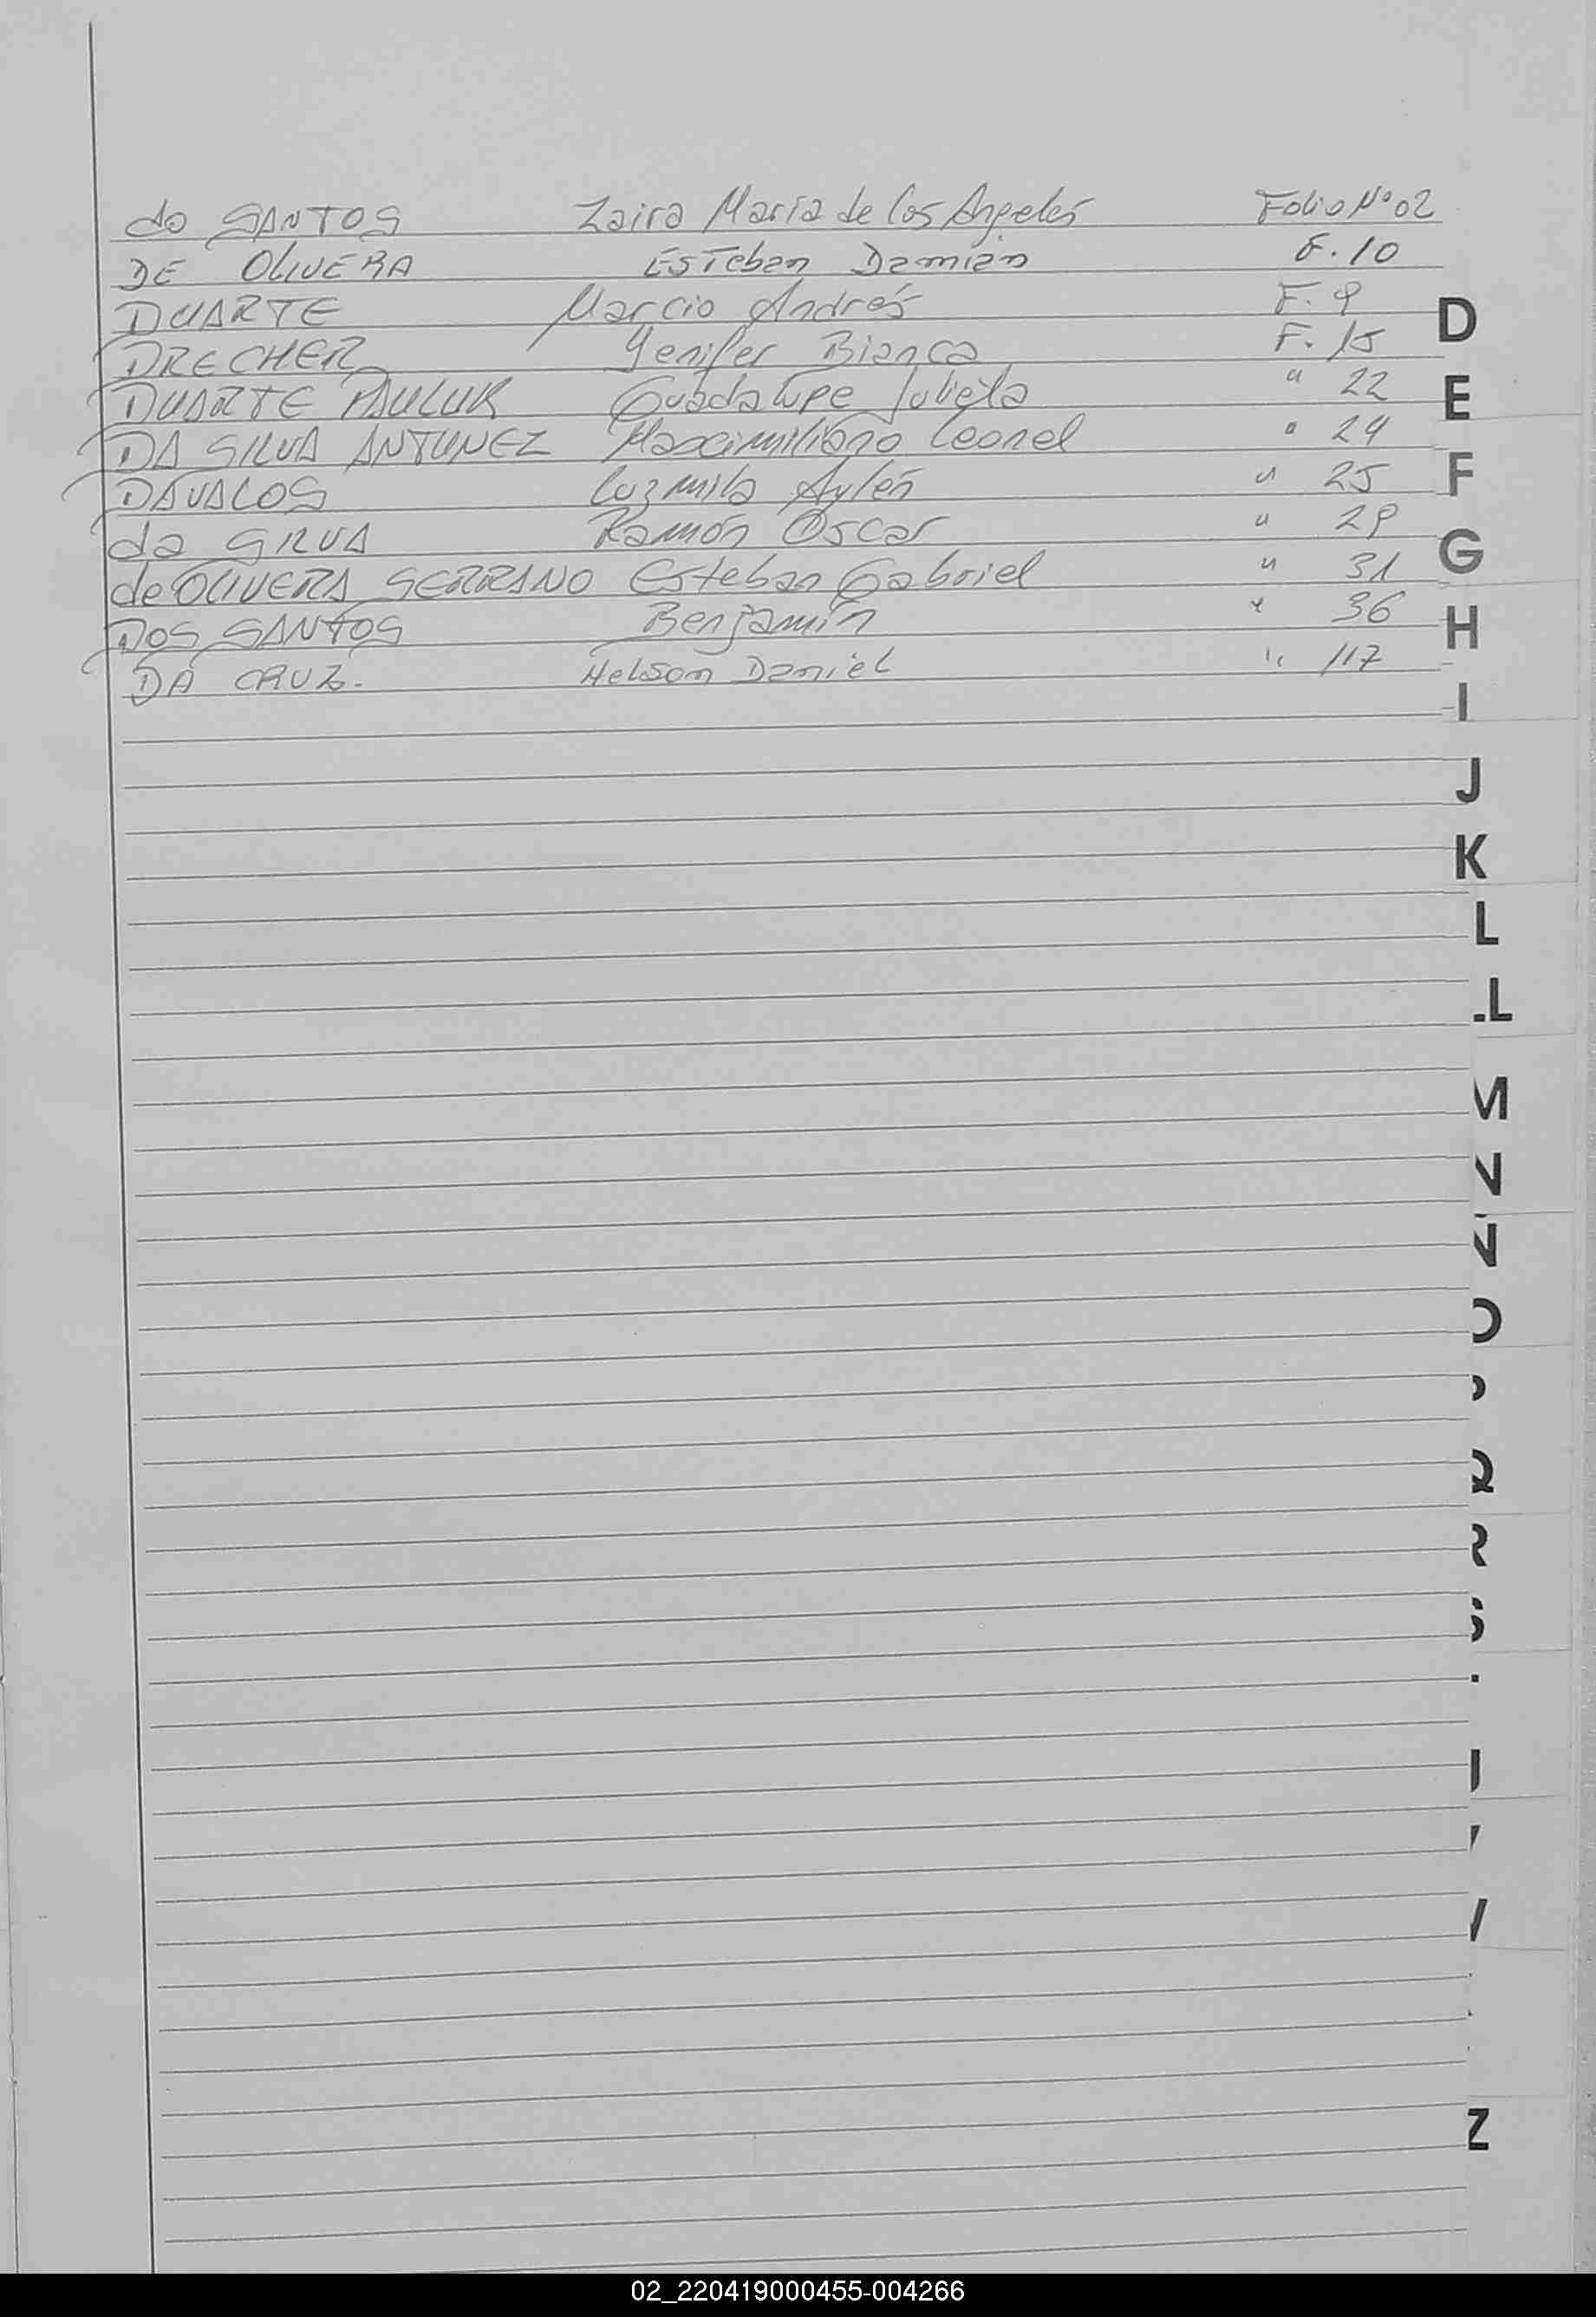 do SANTOS Zaira María de los Angeles Folio Nº 02
DE OLIVERA ESTeban Damián F. 10
DUARTE Marcio Andrés F. 9
DRECHER Yenifer Bianca F. 15
DUARTE PAULUK Guadalupe Julieta " 22
DA SILVA ANTUNEZ Maximiliano Leonel " 24
DÁVALOS Luzmila Aylén " 25
da SILVA Ramón Oscar " 29
de OLIVERA SERRANO Esteban Gabriel " 31
DOS SANTOS Benjamín " 36
DA CRUZ. Nelson Daniel " 117
D
E
F
G
H
I
J
K
L
LL
M
N
Ñ
O
P
Q
R
S
Z
02_220419000455-004266